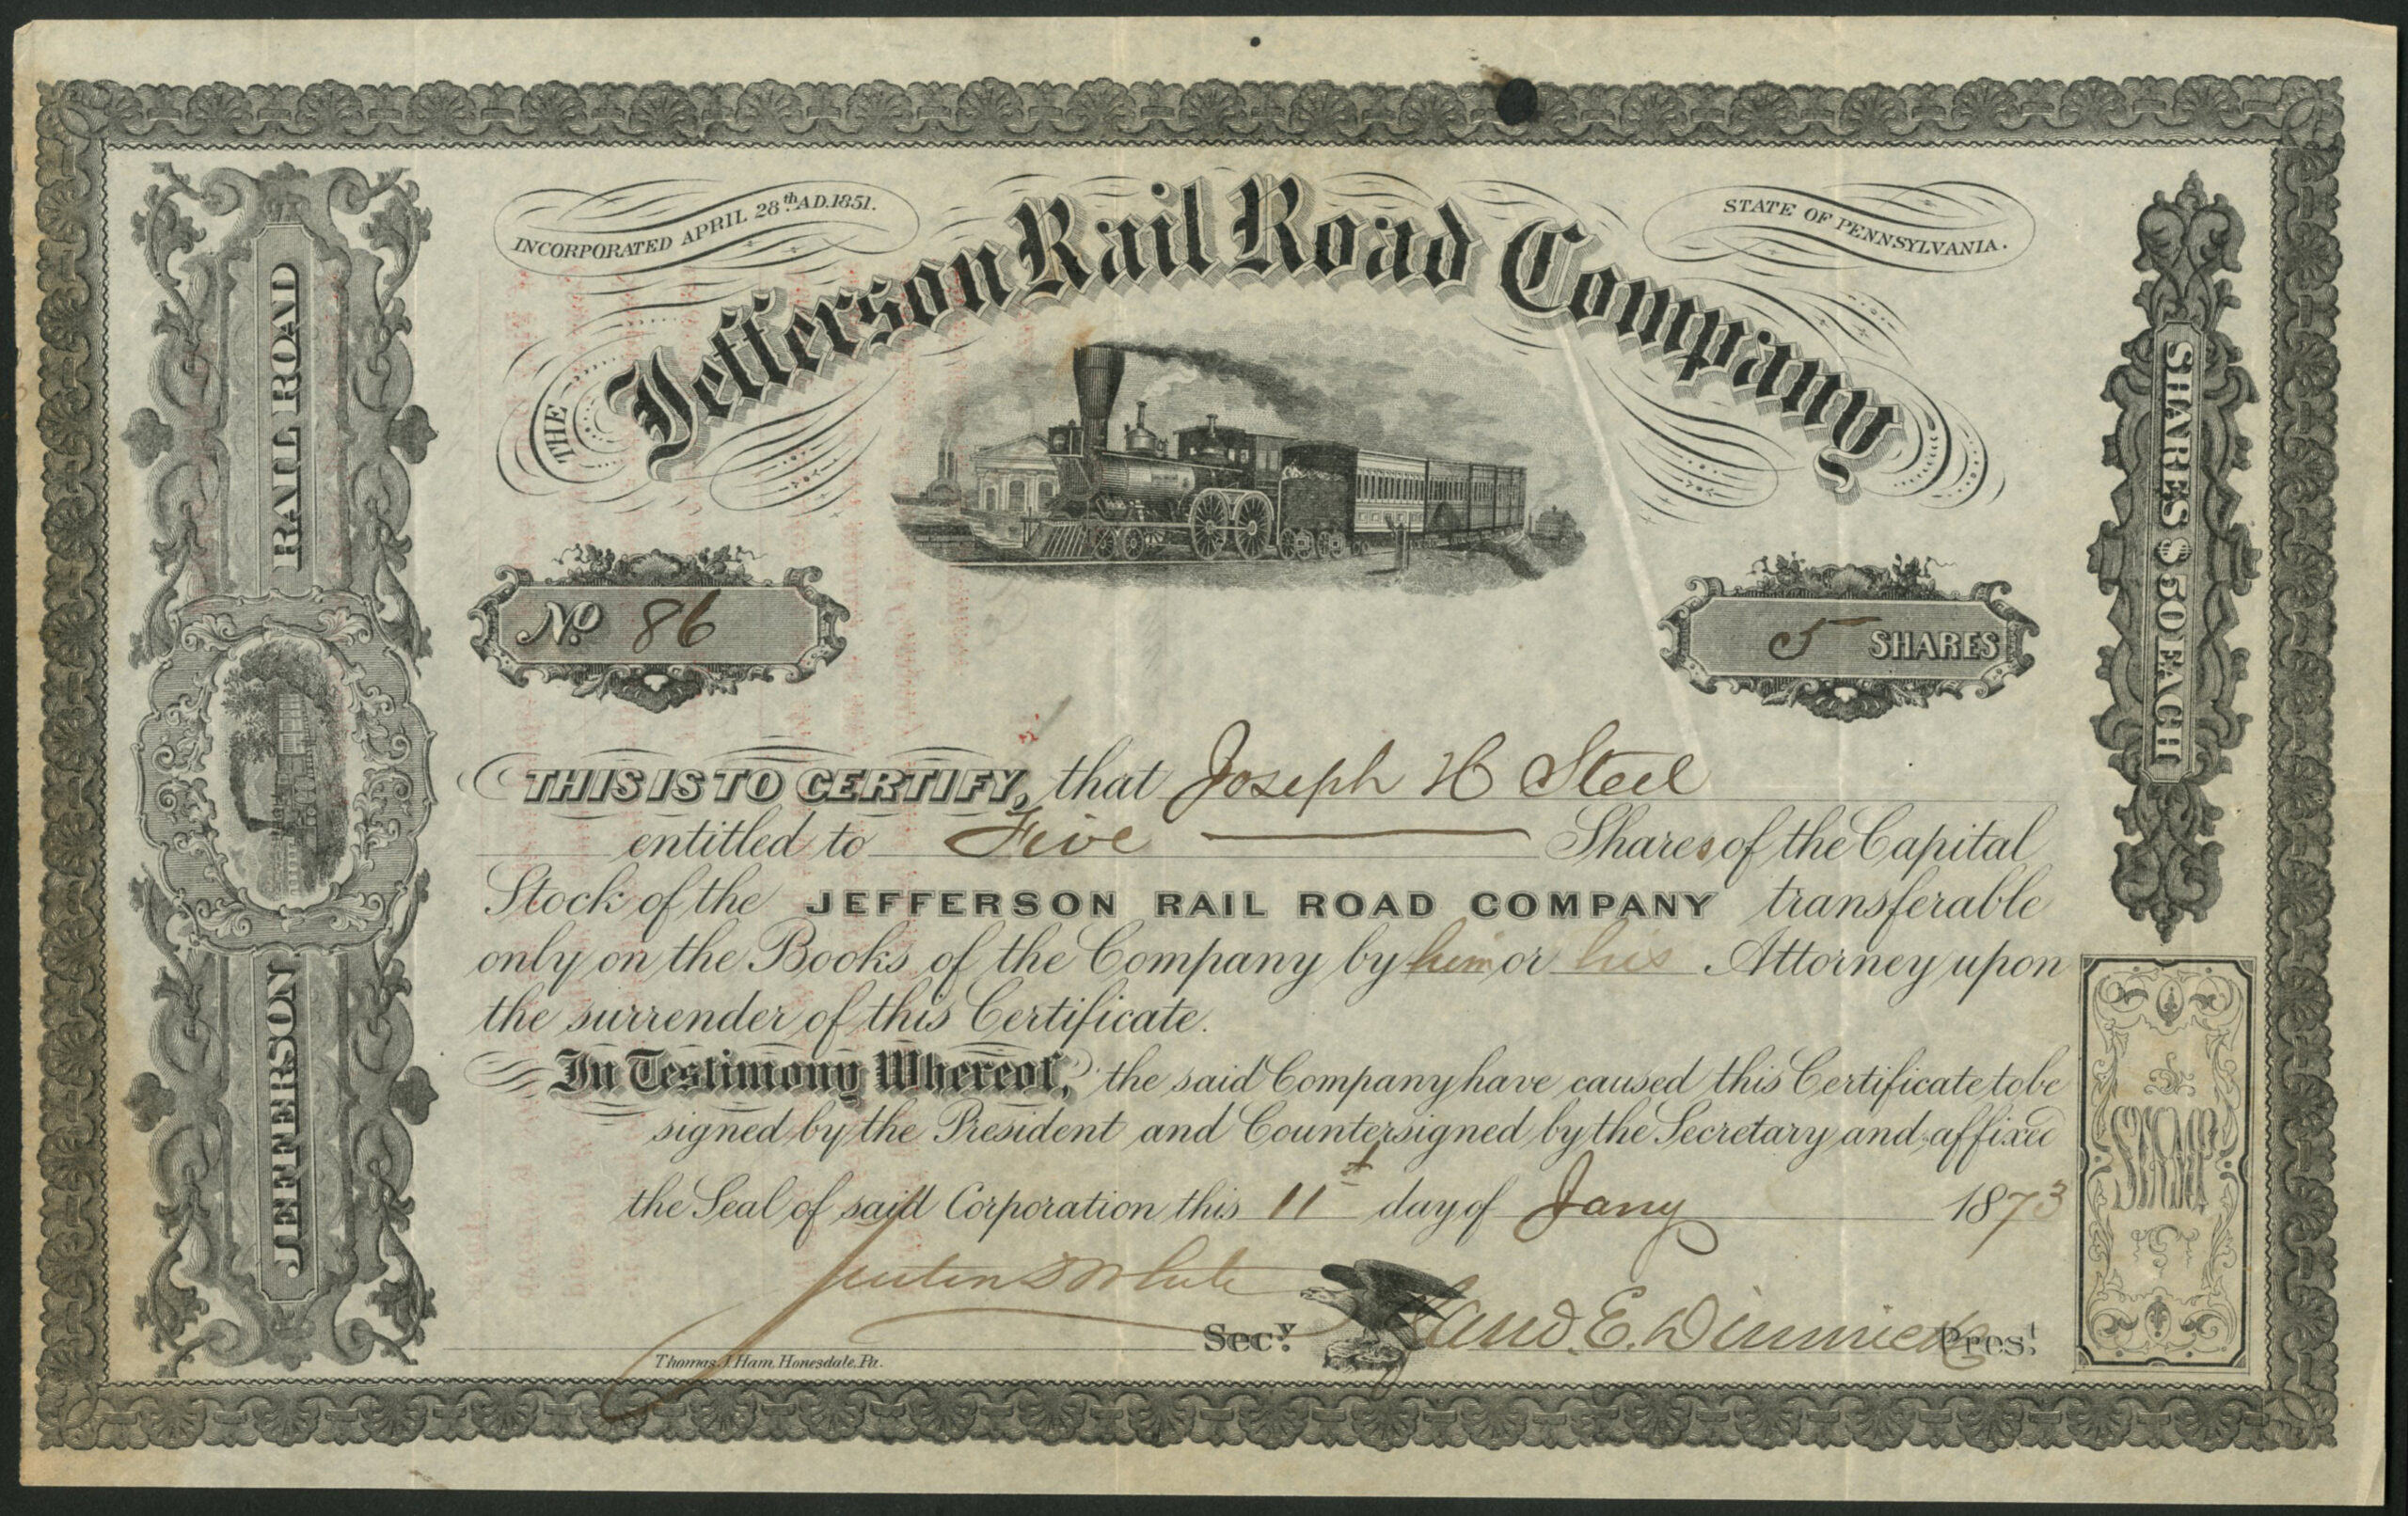 INCORPORATED APRIL 28th A.D. 1851.
STATE OF PENNSYLVANIA.
THE
Jefferson Rail Road Company
JEFFERSON RAIL ROAD
SHARES $50 EACH
No 86
5 SHARES
THIS IS TO CERTIFY, that Joseph H Steel
entitled to Five Shares of the Capital
Stock of the JEFFERSON RAIL ROAD COMPANY transferable
only on the Books of the Company by him or his Attorney upon
the surrender of this Certificate.
In Testimony Whereof, the said Company have caused this Certificate to be
signed by the President and Countersigned by the Secretary and affixed
the Seal of said Corporation this 11th day of Jany 1873
STAMP
White
Secy.
E. Dimmick
Prest.
Thomas J. Ham, Honesdale, Pa.